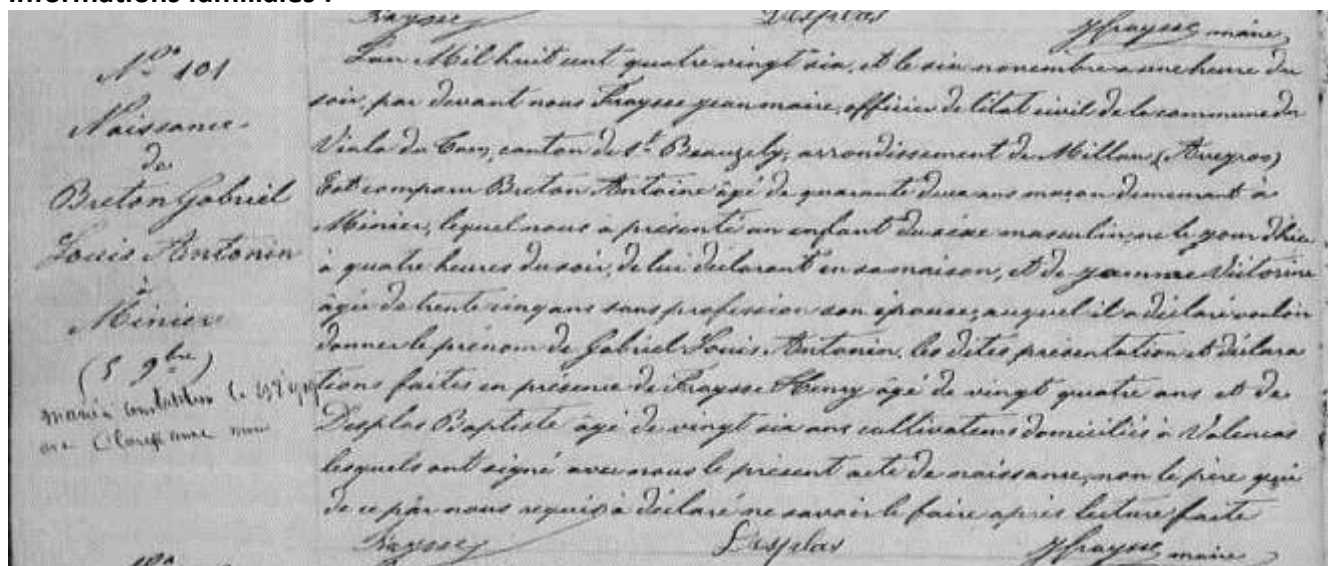 Fraysse Desplas J Fraysse maire
N° 101
Naissance
de
Breton Gabriel
Louis Antonin
à
Minier
(5 9bre)
marié à le
avec
L'an Mil huit cent quatre vingt six, et le six novembre a une heure du
soir, par devant nous Fraysse jean maire, officier de l'état civil de la commune du
Viala du Tarn, canton de St Beauzely, arrondissement de Millau (Aveyron)
Est comparu Breton Antoine âgé de quarante deux ans maçon demeurant à
Minier, lequel nous a présenté un enfant du sexe masculin, né le jour d'hier
à quatre heures du soir, de lui déclarant en sa maison, et de jamme Victorine
âgée de trente cinq ans sans profession son épouse, auquel il a déclaré vouloir
donner le prénom de Gabriel Louis Antonin, les dites présentation et déclara
tions faites en présence de Fraysse Henry âgé de vingt quatre ans et de
Desplas Baptiste âgé de vingt six ans cultivateurs domiciliés à Valencas
lesquels ont signé avec nous le présent acte de naissance, non le père qui
de ce par nous requis a déclaré ne savoir le faire après lecture faite
Fraysse Desplas J Fraysse maire